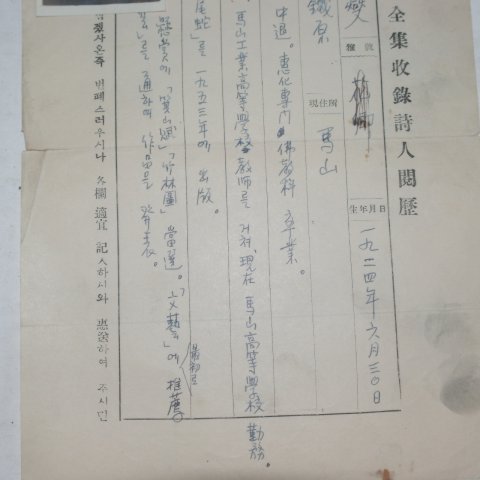 全集收錄詩人閱歷
生年月日 一九二四年六月三〇日
雅號
現住所 馬山
鐵原
中退。惠化專門佛教科 卒業。
馬山工業高等學校 教師를 거쳐, 現在 馬山高等學校 勤務。
尾蛇」를 一九五三年에 出版。
「竹林圖」當選。「文藝」에 最初로 推薦。
를 通하여 作品을 發表。
번폐스러우시나 各欄 適宜 記入하시와 惠送하여 주시면